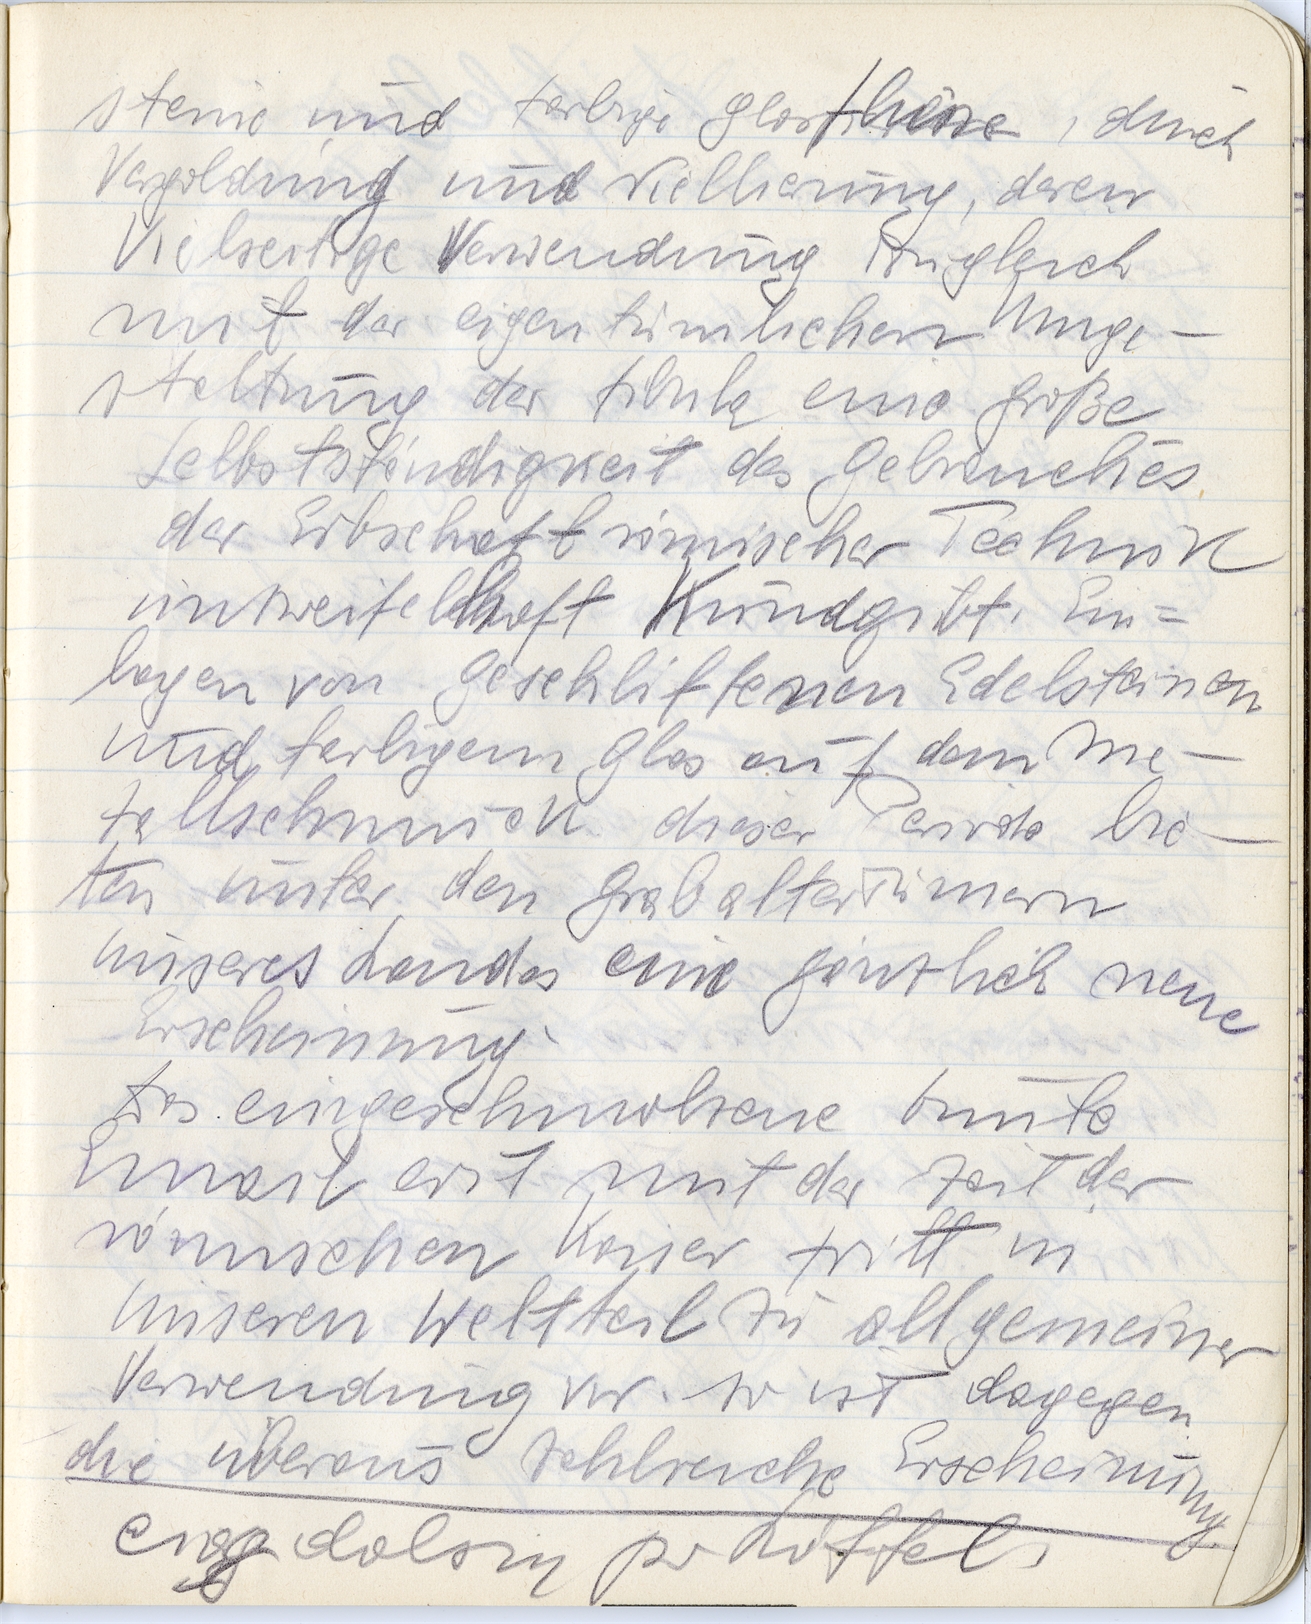 steine und farbige Glasflüsse, durch
Vergoldung und Niellierung, deren
Vielseitige Verwendung zugleich
mit der eigentümlichen Umge-
staltung der fibula eine große
Selbstständigkeit des Gebrauches
der Erbschaft römischer Technik
unzweifelhaft Kundgibt. Ein=
lagen von geschliffenen Edelsteinen
und farbigem Glas auf dem Me-
tallschmuck dieser Periode bie-
ten unter den Grabaltertümern
unseres Landes eine gänzlich neue
Erscheinung.
Das eingeschmolzene bunte
Email erst mit der Zeit der
römischen Kaiser tritt in
unseren Weltteil zu allgemeiner
Verwendung vor. So ist dagegen
die überaus zahlreiche Erscheinung
Löffel